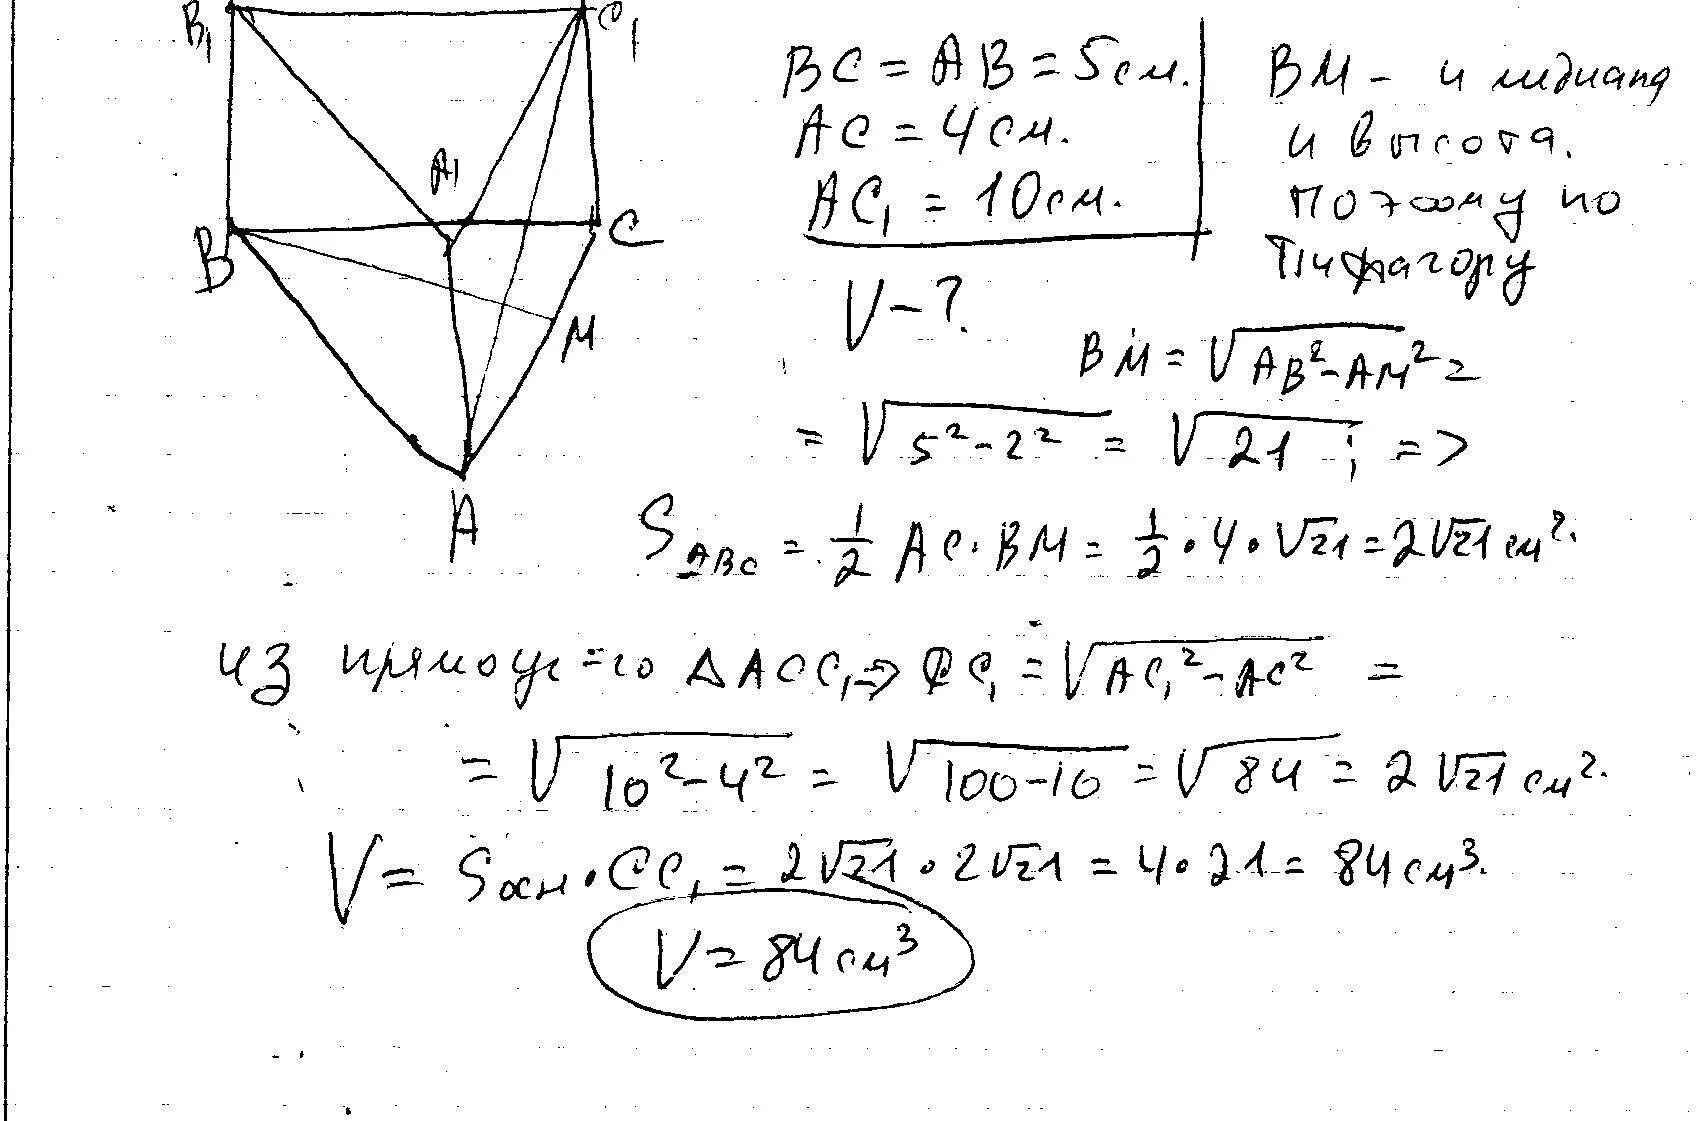 B₁
C₁
A₁
B
C
M
A
BC = AB = 5см.
AC = 4см.
AC₁ = 10см.
V - ?
BM - и медиана
и высота.
Поэтому по
Пифагору
BM = √(AB² - AM²) =
= √(5² - 2²) = √21 ; =>
S_ABC = 1/2 AC · BM = 1/2 · 4 · √21 = 2√21 см².
из прямоуг=го △ACC₁ => CC₁ = √(AC₁² - AC²) =
= √(10² - 4²) = √(100 - 16) = √84 = 2√21 см².
V = Sосн · CC₁ = 2√21 · 2√21 = 4 · 21 = 84 см³.
V = 84 см³